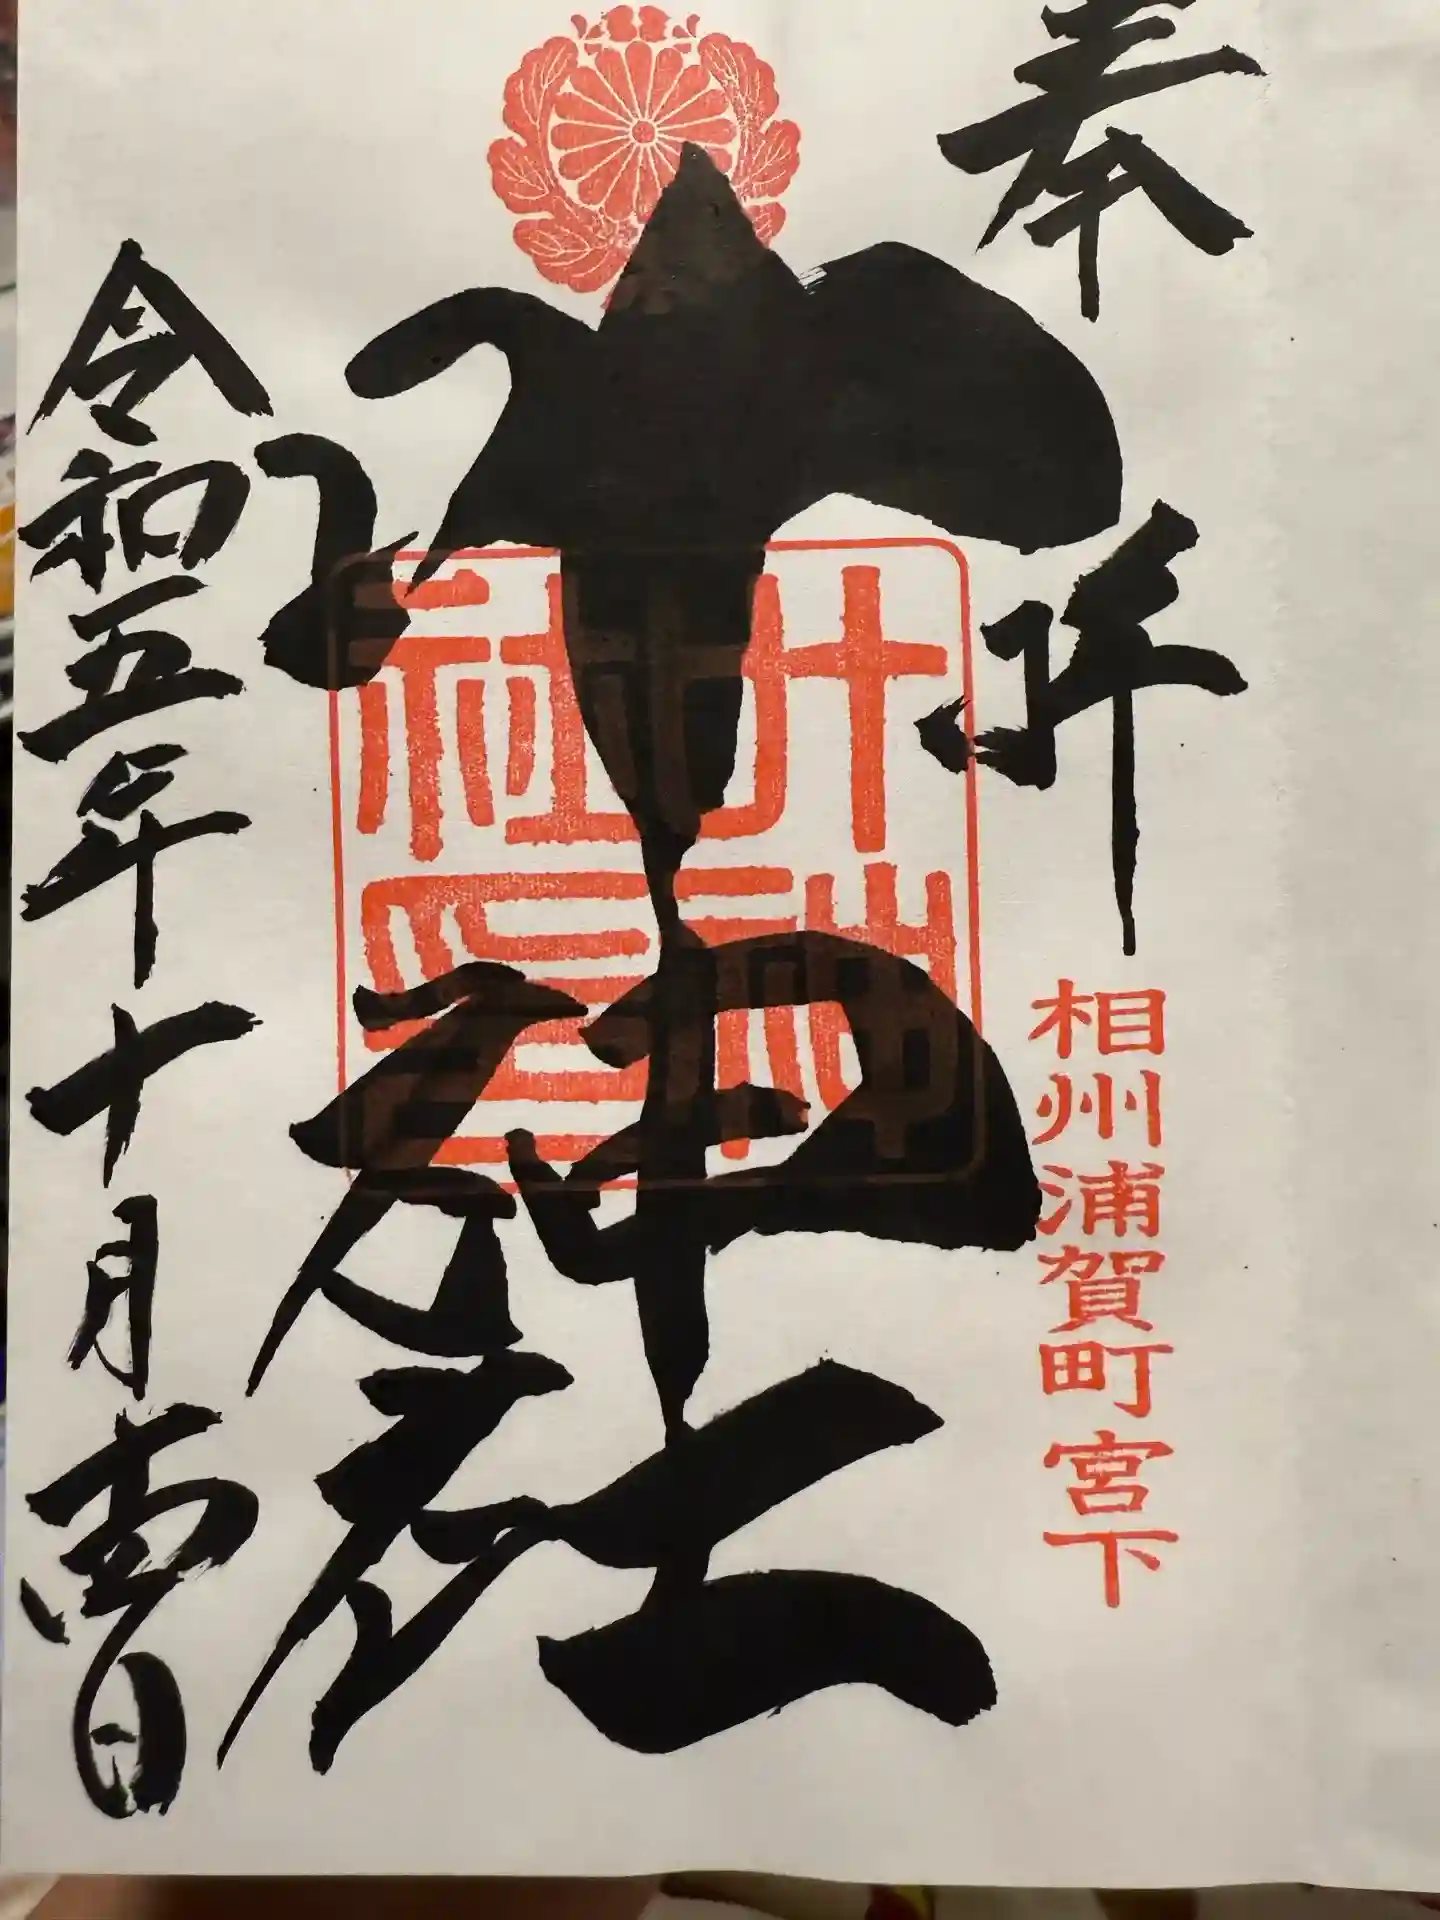 奉拝
相州浦賀町宮下
叶神社
叶神社印
令和五年十月壹日